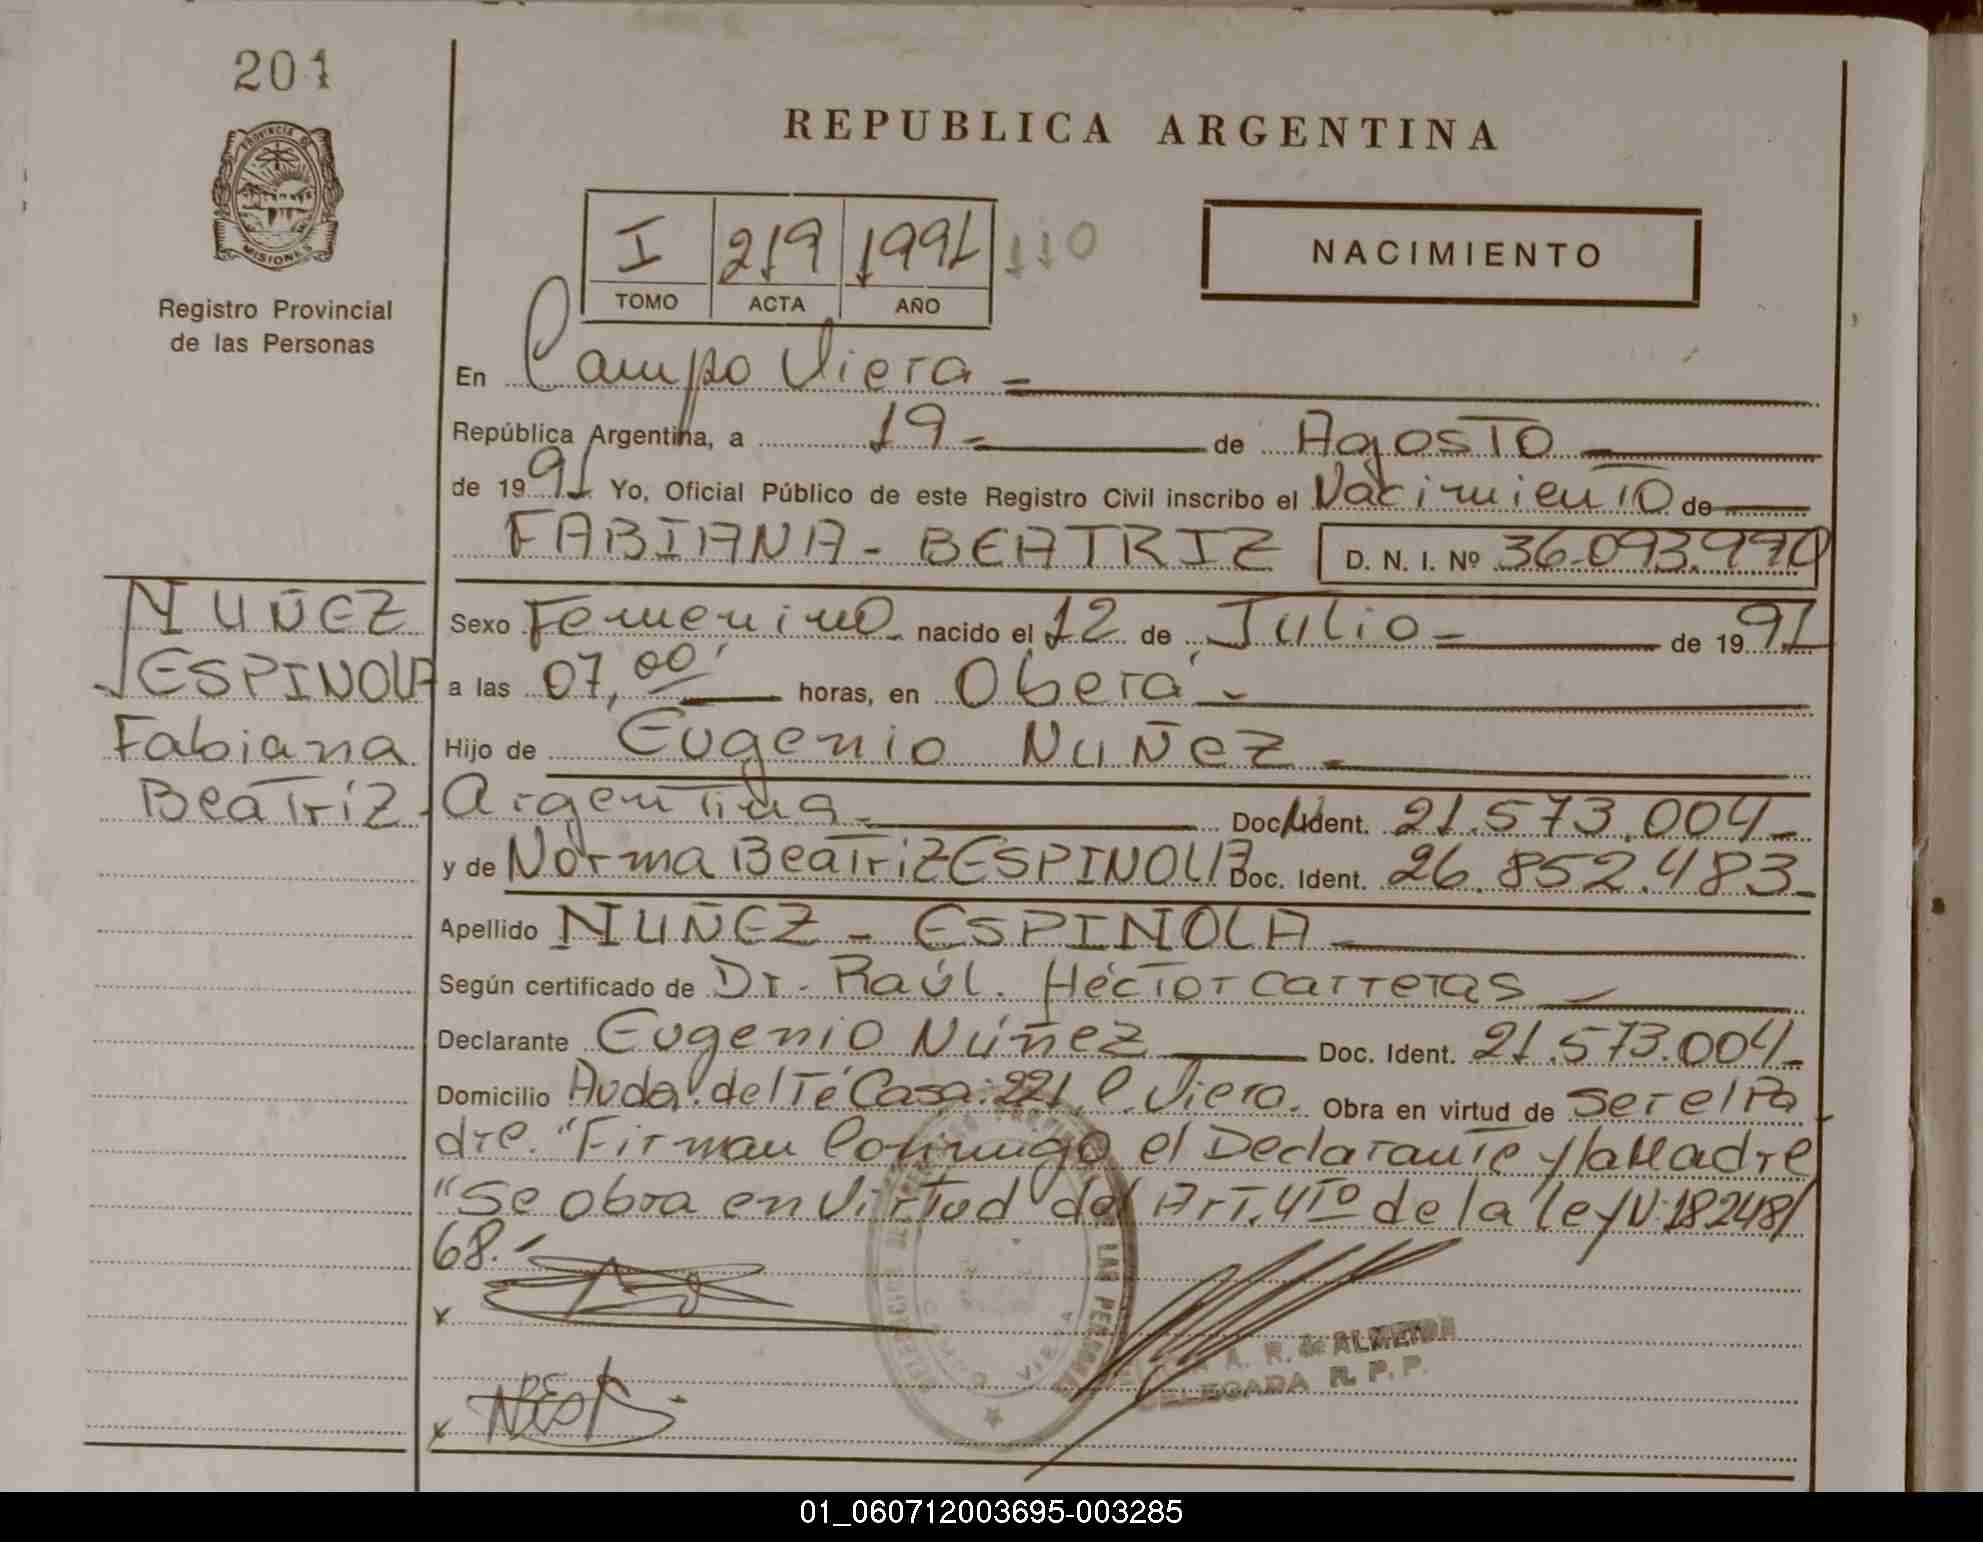 201
PROVINCIA DE
MISIONES
Registro Provincial
de las Personas
REPUBLICA ARGENTINA
I 219 1991 110
TOMO ACTA AÑO
NACIMIENTO
En Campo Viera
República Argentina, a 19 de Agosto
de 1991 Yo, Oficial Público de este Registro Civil inscribo el Nacimiento de
FABIANA - BEATRIZ D. N. I. Nº 36.093.990
NUÑEZ
ESPINOLA
Fabiana
Beatriz
Sexo Femenino nacido el 12 de Julio de 1991
a las 07,00 horas, en Oberá
Hijo de Eugenio NUÑEZ
Argentina Doc. Ident. 21.573.004
y de Norma Beatriz ESPINOLA Doc. Ident. 26.852.483
Apellido NUÑEZ - ESPINOLA
Según certificado de Dr. Raúl. Héctor Carreras
Declarante Eugenio Núñez Doc. Ident. 21.573.004
Domicilio Avda. del Té Casa: 221 C. Viera. Obra en virtud de Ser el Pa
dre. "Firman Conmigo el Declarante y la Madre
"Se obra en Virtud del Art. 4to de la ley N: 18248/
68.-
x
A. R. de ALMEIDA
DELEGADA R. P. P.
x
01_060712003695-003285